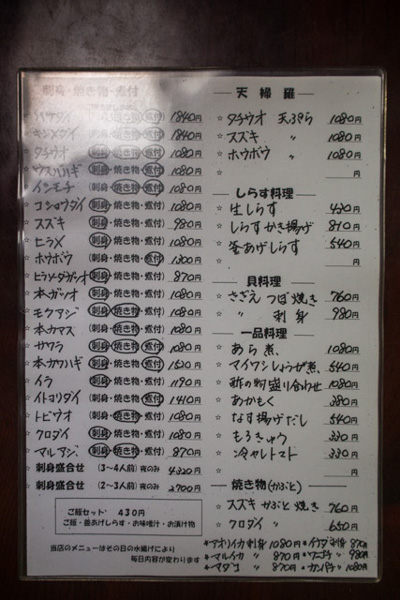 刺身・焼き物・煮付
ハナダイ (刺身・焼き物・煮付) 1840円
キンメダイ (刺身・焼き物・煮付) 1840円
タチウオ (刺身・焼き物・煮付) 1080円
ウスバハギ (刺身・焼き物・煮付) 1080円
イシモチ (刺身・焼き物・煮付) 1080円
☆ コショウダイ (刺身・焼き物・煮付) 1080円
☆ スズキ (刺身・焼き物・煮付) 980円
☆ ヒラメ (刺身・焼き物・煮付) 1080円
☆ ホウボウ (刺身・焼き物・煮付) 1300円
☆ ヒラソーダガツオ (刺身・焼き物・煮付) 870円
☆ 本ガツオ (刺身・焼き物・煮付) 1080円
☆ モクアジ (刺身・焼き物・煮付) 1080円
☆ 本カマス (刺身・焼き物・煮付) 1080円
☆ サワラ (刺身・焼き物・煮付) 1080円
☆ 本カワハギ (刺身・焼き物・煮付) 1520円
☆ イラ (刺身・焼き物・煮付) 1190円
☆ イトヨリダイ (刺身・焼き物・煮付) 1410円
☆ トビウオ (刺身・焼き物・煮付) 1080円
☆ クロダイ (刺身・焼き物・煮付) 1080円
☆ マルアジ (刺身・焼き物・煮付) 870円
☆ 刺身盛合せ (3〜4人前) 夜のみ 4320円
☆ 刺身盛合せ (2〜3人前) 夜のみ 2700円
ご飯セット 430円
ご飯・釜あげしらす・お味噌汁・お漬け物
当店のメニューはその日の水揚げにより
毎日内容が変わります
天婦羅
☆ タチウオ 天ぷら 1080円
☆ スズキ 〃 1080円
☆ ホウボウ 〃 1080円
☆ 円
しらす料理
☆ 生しらす 430円
☆ しらすかき揚げ 810円
☆ 釜あげしらす 540円
☆ 円
貝料理
☆ さざえ つぼ焼き 760円
☆ 〃 刺身 980円
一品料理
☆ あら煮、 1080円
☆ マイワシしょうが煮、 540円
☆ 酢の物盛り合わせ 1080円
☆ あかもく 380円
☆ なす揚げだし 540円
☆ もろきゅう 330円
☆ 冷やしトマト 330円
☆ 円
焼き物(かぶと)
☆ スズキ かぶと焼き 760円
☆ クロダイ 〃 650円
*アオリイカ刺身 1080円 *イワシ刺身 870円
*マルイカ 〃 870円 *ワニゴチ 〃 980円
*マダコ 〃 870円 *カンパチ 〃 1080円